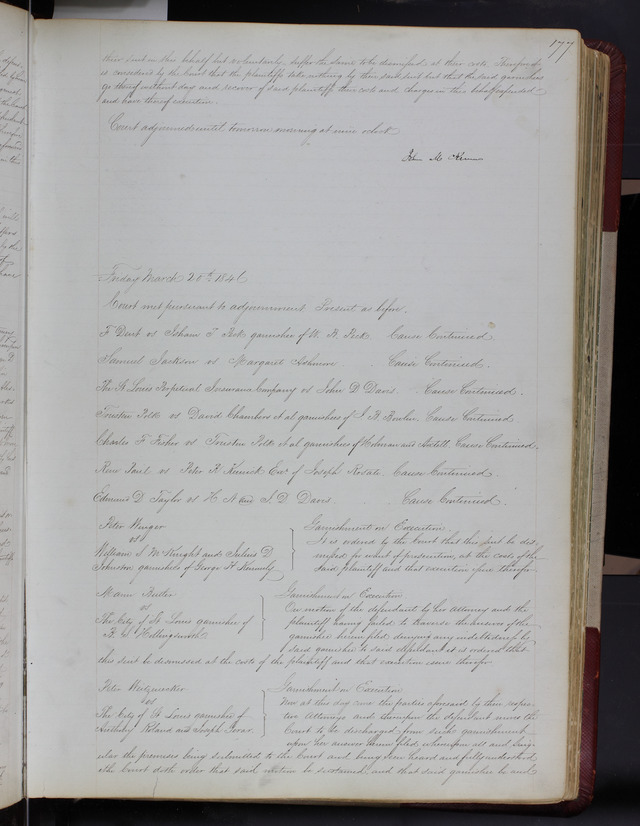 177
their suit in this behalf but voluntarily suffer the same to be dismissed at their costs Therefore it
is considered by the Court that the plaintiffs take nothing by their said suit but that the said garnishees
go thereof without day and recover of said plaintiffs their costs and charges in this behalf expended
and have thereof execution.
Court adjourned until tomorrow morning at nine oclock
John M.
Friday March 20th 1846
Court met pursuant to adjournment Present as before.
F Dent vs Isham T Peck garnishee of W. H. Peck Cause Continued
Samuel Jackson vs Margaret Ashmore Cause Continued.
The St Louis Perpetual Insurance Company vs John D Davis Cause Continued.
Trusten Polk vs David Chambers et al garnishees of J B Bowlin Cause Continued
Charles F Fisher vs Trusten Polk et al garnishees of and Cause Continued.
Rene Paul vs Peter R Kenrick Exr of Joseph Rosati Cause Continued
Edmund D Taylor vs H. N. and J. D Davis Cause Continued.
Peter Winger
vs
William S McKnight and Julius D
Johnston garnishees of George H Kennerly
Garnishment on Execution
It is ordered by the Court that this suit be dis
missed for want of prosecution, at the costs of the
said plaintiff and that execution issue therefor.
Mann Butler
vs
The City of St Louis garnishee of
Hollingsworth
Garnishment on Execution
On motion of the defendant by her attorney and the
plaintiff having failed to traverse the answer of the
garnishee herein filed, denying any indebtedness by
said garnishee to said defendant it is ordered that
this suit be dismissed at the costs of the plaintiff and that execution issue therefor
Peter
vs
The City of St Louis garnishee of
Anthony and Joseph
Garnishment on Execution
Now at this day come the parties aforesaid by their respec
tive Attorneys and thereupon the defendant moves the
Court to be discharged from such garnishment
upon her answer herein filed, whereupon all and singu
ular the premises being submitted to the Court and being seen heard and fully understood
the Court doth order that said motion be sustained, and that said garnishee be and